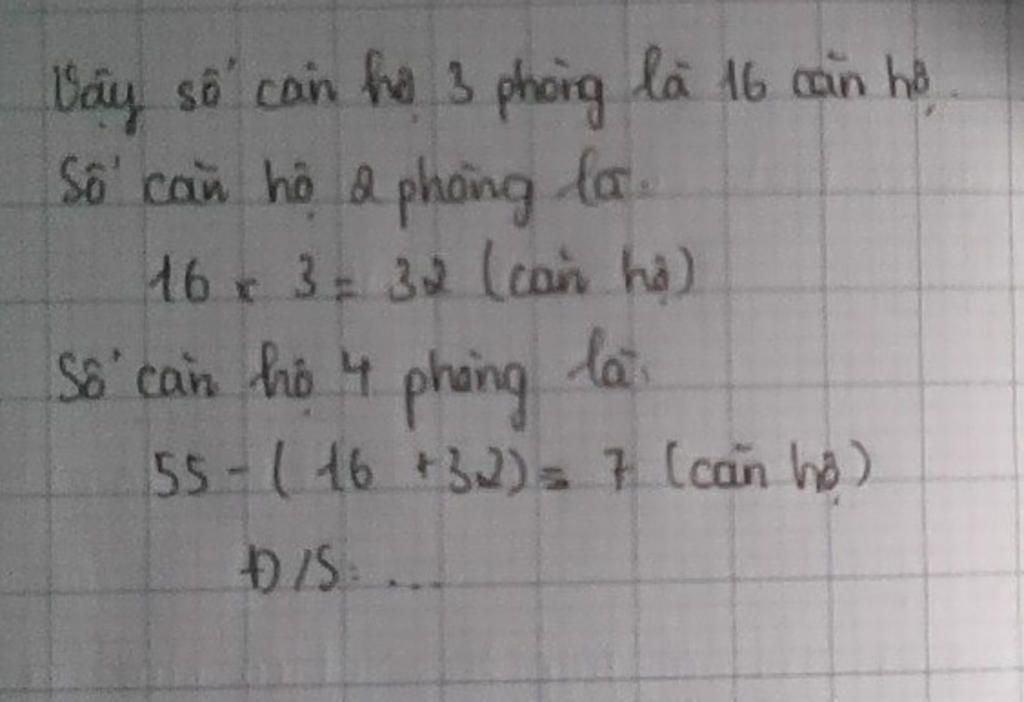 Vậy số căn hộ 3 phòng là 16 căn hộ.
Số căn hộ 2 phòng là:
16 x 3 = 32 (căn hộ)
Số căn hộ 4 phòng là:
55 - ( 16 + 32) = 7 (căn hộ)
Đ/S: ...